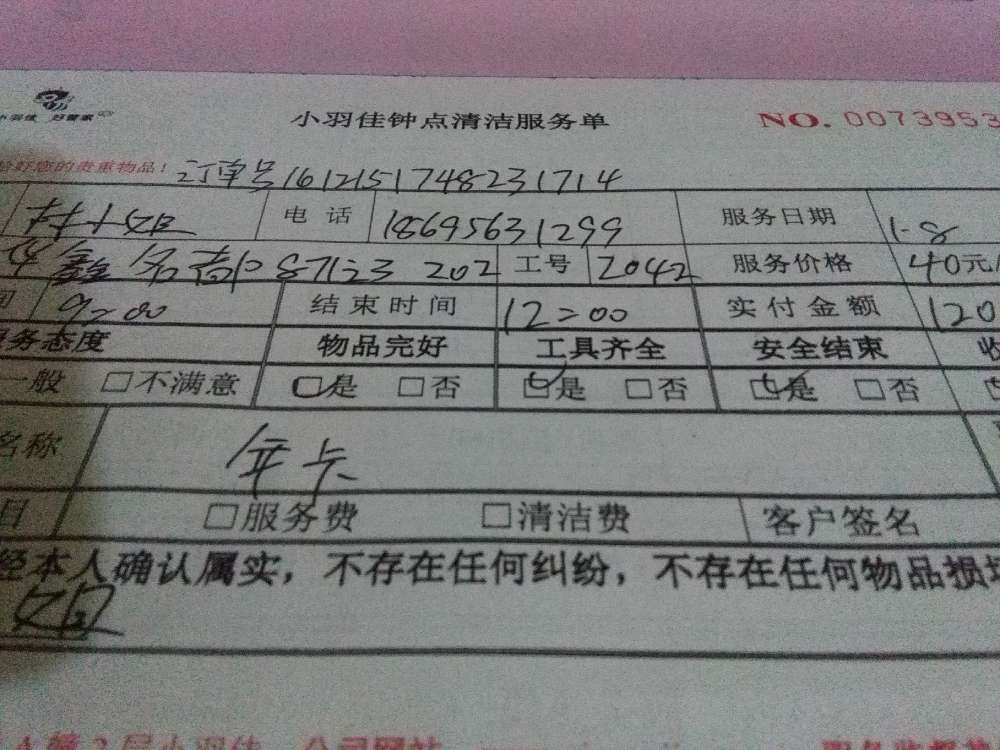 小羽佳 好管家
小羽佳钟点清洁服务单 NO. 0073953
您的贵重物品! 订单号1612151748231714
林小姐 电话 18695631299 服务日期 1-8
鑫名都 202 工号 2042 服务价格 40元/
9=00 结束时间 12=00 实付金额 120
服务态度 物品完好 工具齐全 安全结束
一般 □不满意 □是 □否 □是 □否 □是 □否
名称 年卡
□服务费 □清洁费 客户签名
经本人确认属实，不存在任何纠纷，不存在任何物品损
姐
小羽佳 公司网站